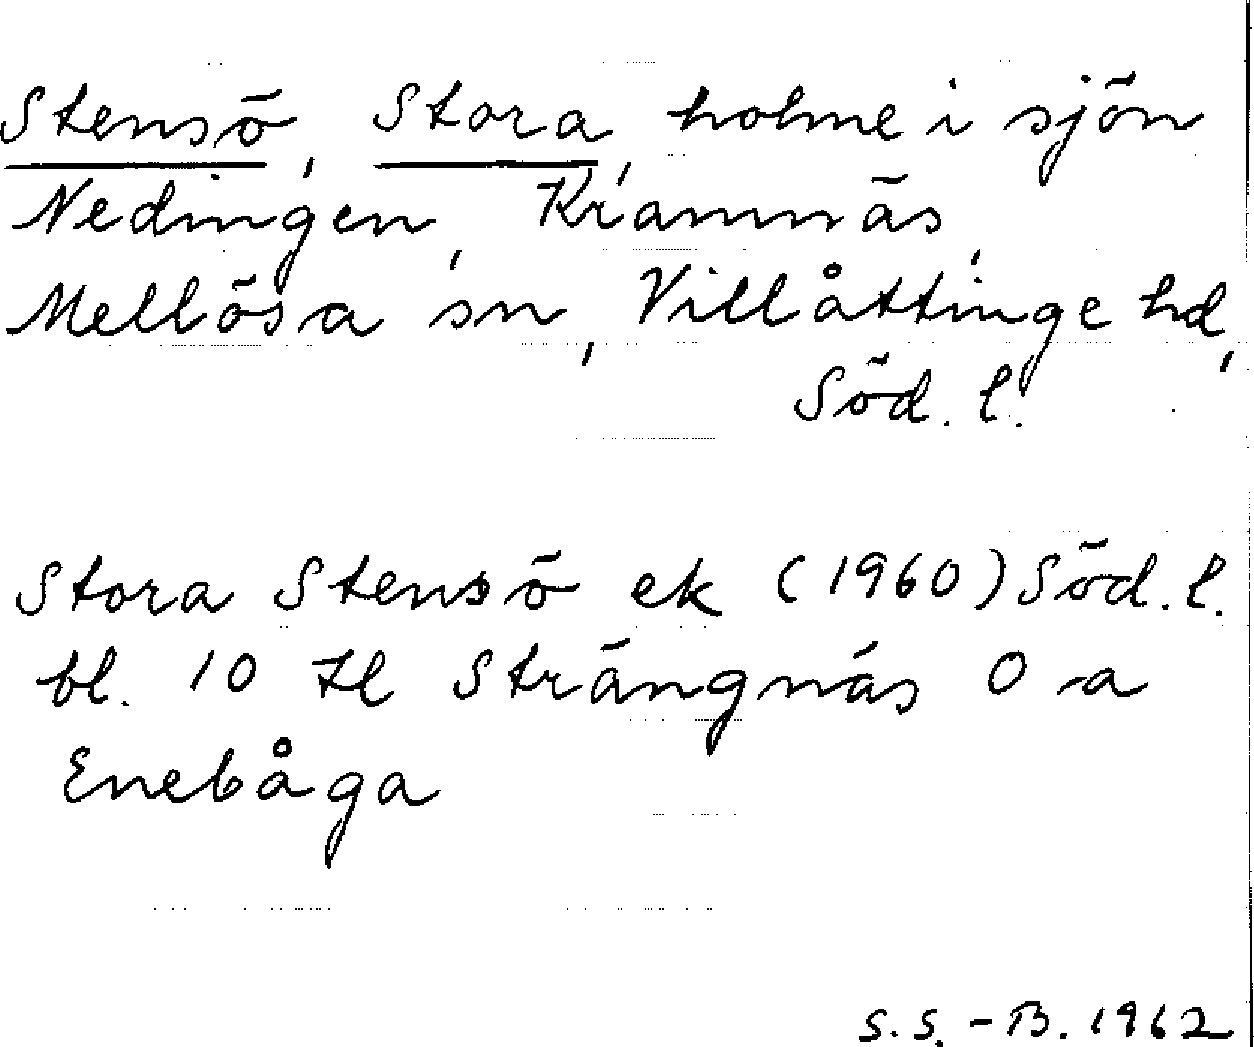 Stensö, Stora, holme i sjön
Nedingen, Kramnäs,
Mellösa sn, Villåttinge hd,
Söd. l.
Stora Stensö ek (1960) Söd. l.
bl. 10 tl Strängnäs O a
Enebåga
S.S.-B. 1962